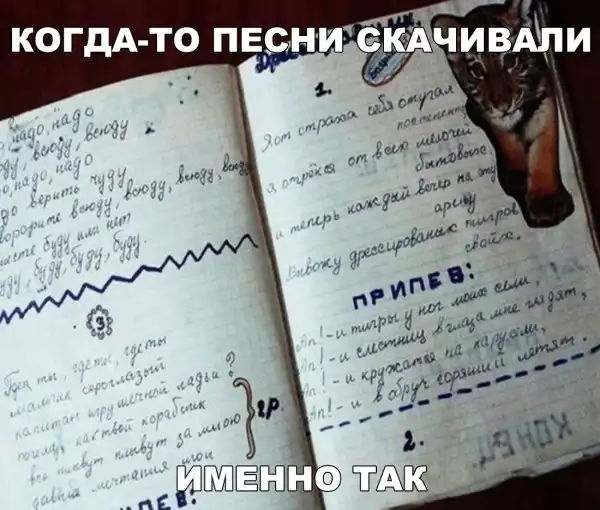 КОГДА-ТО ПЕСНИ СКАЧИВАЛИ
надо, надо
всюду, всюду
надо, надо
верить чуду
всюду, всюду, всюду, всюду
вместе буду или нет
буду, буду, буду, буду.
3
Где ты, где ты, где ты
мальчик сероглазый
капитан игрушечной ладьи?
почему как твой кораблик
все плывут плывут за мною
давние мечтания мои
2р.
ПРИПЕВ:
1.
Я от страха себя отучал
постепенно
Я отрёкся от всех мелочей
бытовых
и теперь каждый вечер на эту
арену
Вывожу дрессированных тигров
своих.
ПРИПЕВ:
Ап! - и тигры у ног моих сели,
Ап! - и с лестниц в глаза мне глядят,
Ап! - и кружатся на карусели,
Ап! - и в обруч горящий летят.
2.
КОНЕЦ
ИМЕННО ТАК